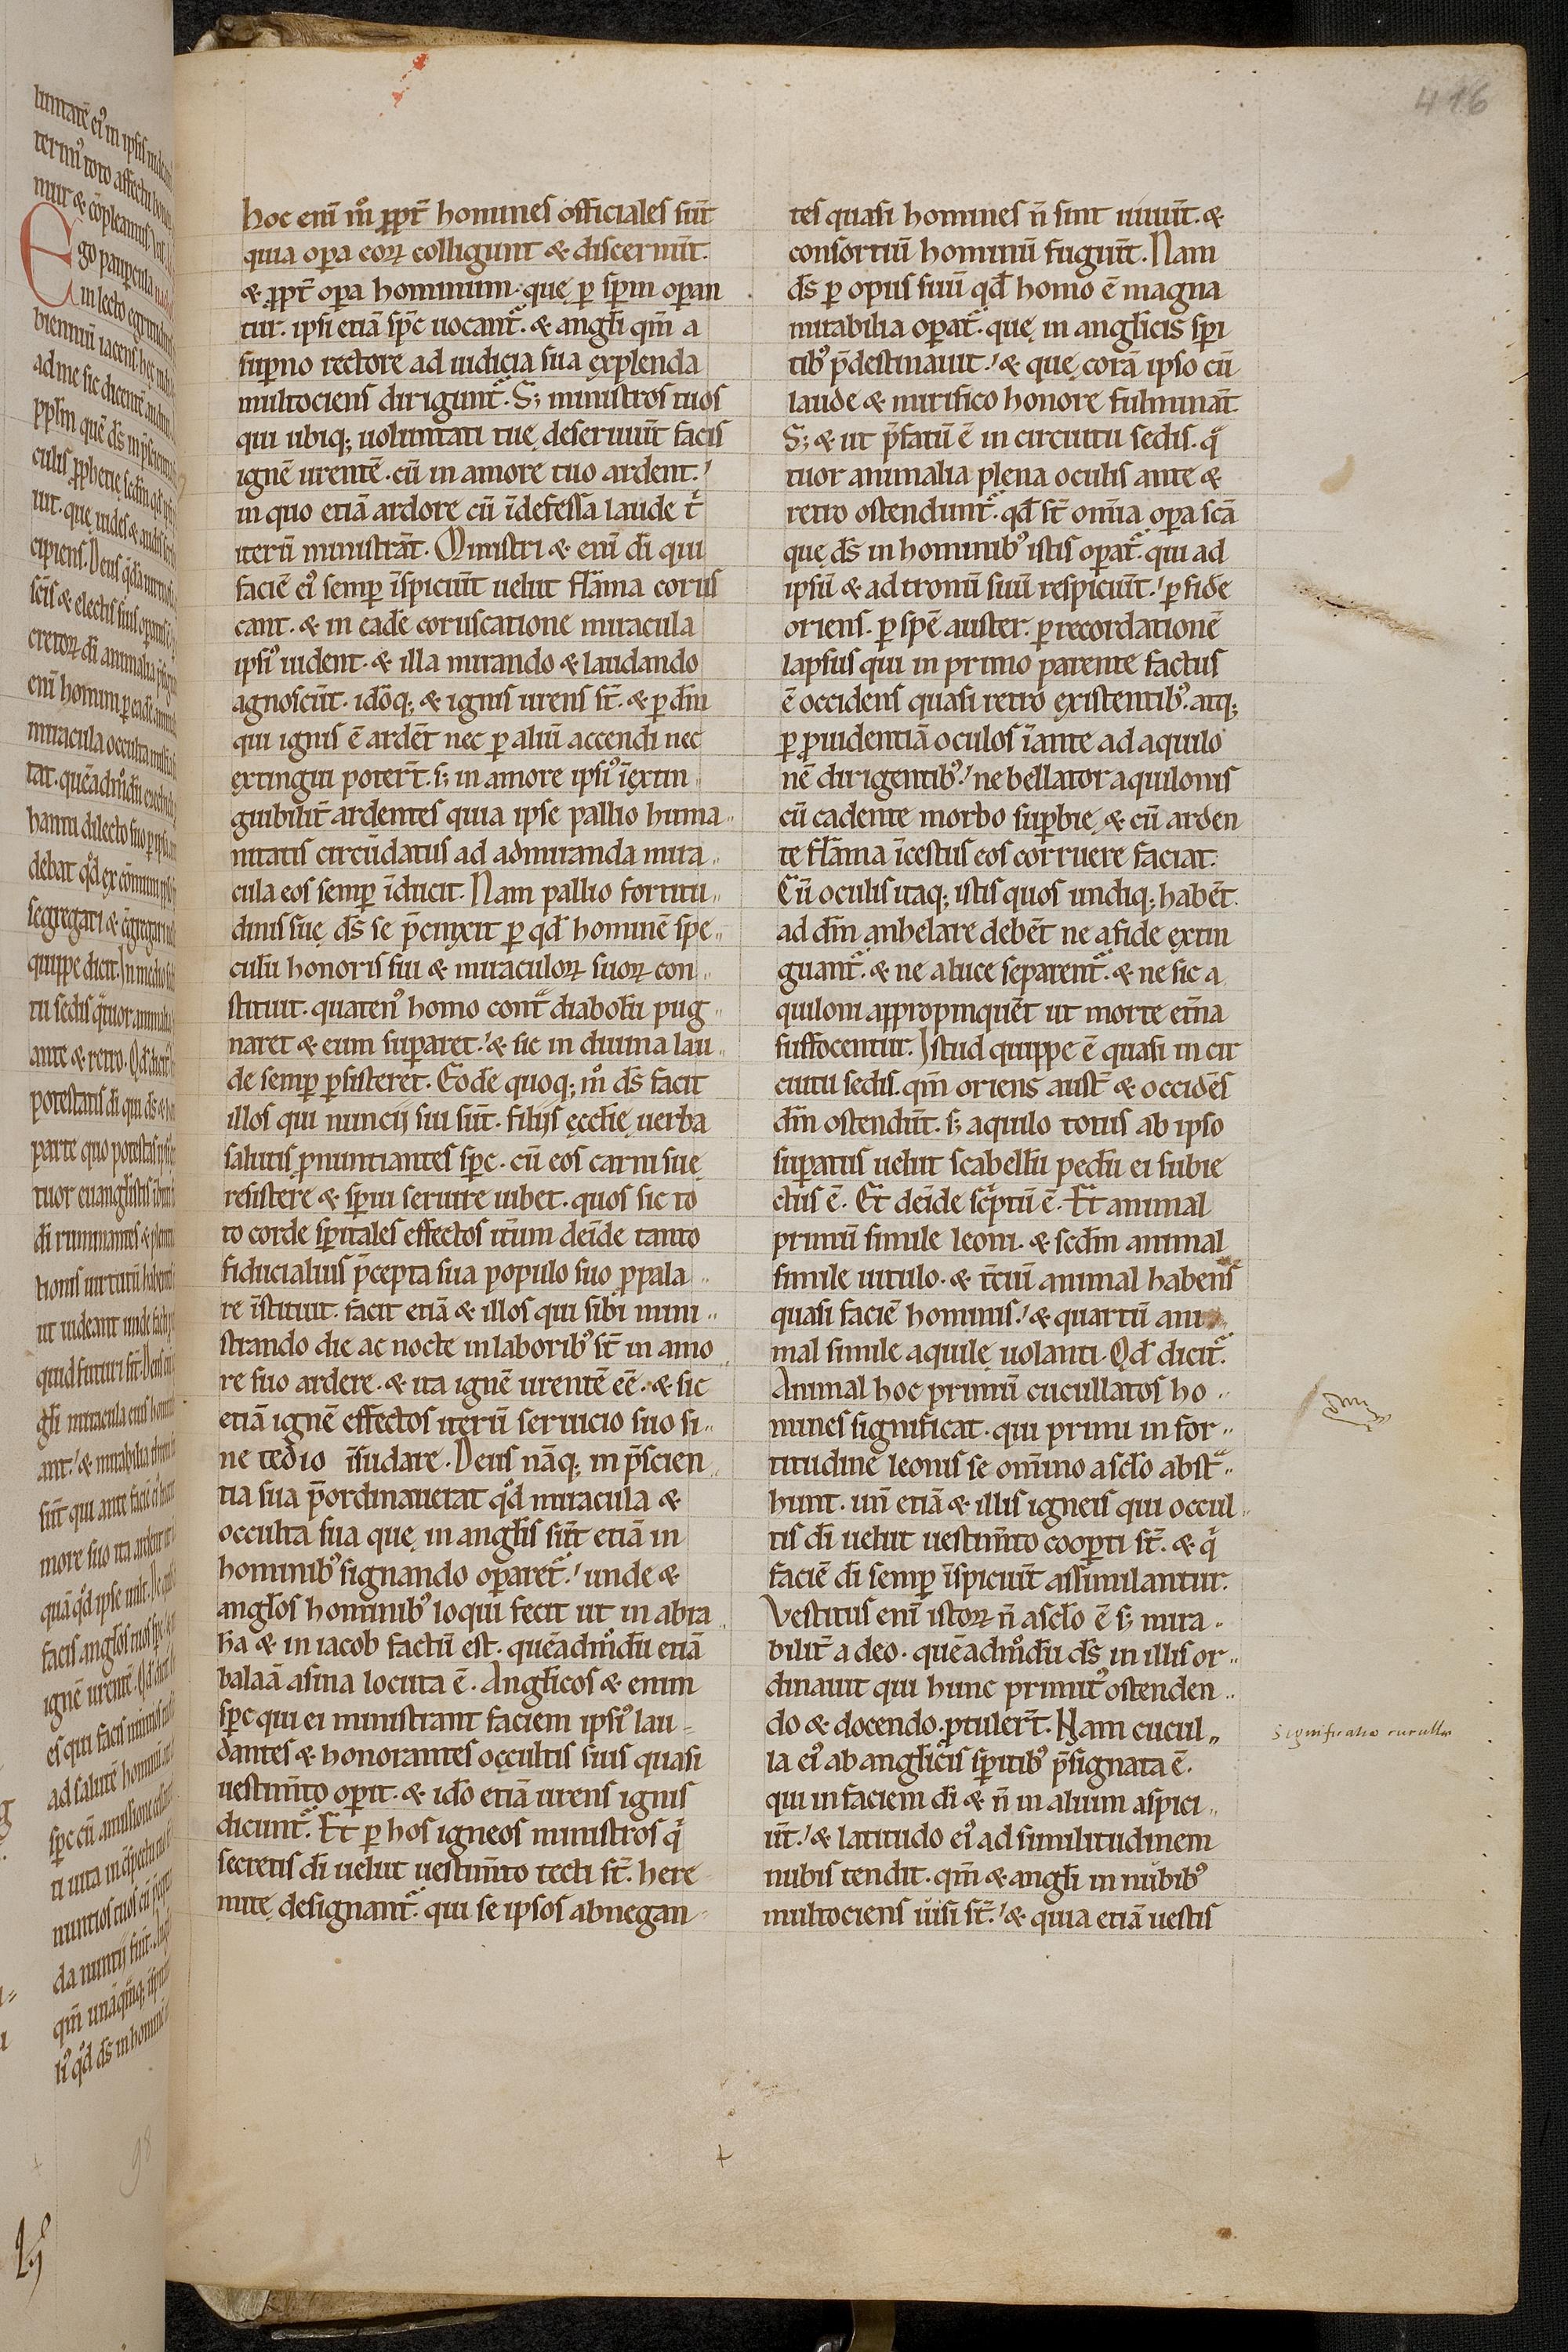 416
hoc eni̅ m͛ ꝓpt̅ homines officiales su̅t
quia op̲a eoꝝ colligunt & discernu̅t.
& ꝓpt̅ op̲a hominum. quę p̲ sp̅m op̲an
tur. ipsi etia̅ sp̅c uocant᷑. & angl̅i qm̅ a
sup̲no rectore ad iudicia sua explenda
multociens dirigunt᷑. S; ministros tuos
qui ubiq; uoluntati tuę deseruiu̅t facis
igne̅ urente̅. cu̅ in amore tuo ardent.
in quo etia̅ ardore cu̅ i̅defessa laude t̅
iteru̅ ministra̅t. Ministri & eni̅ di̅ qui
facie̅ ei᷒ semp̲ i̅spiciu̅t uelut fla̅ma corus
cant. & in eade̅ coruscatione miracula
ipsi᷒ uident. & illa mirando & laudando
agnoscu̅t. ido̅q; & ignis urens st̅. & p̲ dm̅
qui ignis e̅ arde̅t nec p̲ aliu̅ accendi nec
extingui poter̅t. s; in amore ipsi᷒ i̅extin
guibilit̅ ardentes quia ipse pallio huma
nitatis circu̅datus ad admiranda mira
cula eos semp̲ i̅ducit. Nam pallio fortitu
dinis suę ds̅ se p̅cinxit p̲ qd̅ homine̅ spe
culu̅ honoris sui & miraculoꝝ suoꝝ con
stituit. quaten᷒ homo cont᷑ diabolu̅ pug
naret & eum sup̲aret. & sic in diuina lau
de semp̲ p̲sisteret. Eode̅ quoq; m͛ ds̅ facit
illos qui nuncij sui su̅t. filijs ęccl̅ię uerba
salutis ꝓnuntiantes sp̅c. cu̅ eos carni suę
resistere & sp̅ui seruire iubet. quos sic to
to corde sp̅itales effectos it̅um dei̅de tanto
fiducialius p̅cepta sua populo suo ꝓpala
re i̅stituit. facit etia̅ & illos qui sibi mini
strando die ac nocte in laborib᷒ st̅ in amo
re suo ardere. & ita igne̅ urente̅ ee̅. & sic
etia̅ igne̅ effectos iteru̅ seruicio suo si
ne tedio i̅sudare. Deus na̅q; in p̅scien
tia sua p̅ordinauerat qd̅ miracula &
occulta sua quę in angl̅is su̅t etia̅ in
hominib᷒ signando op̲aret᷑. unde &
angl̅os hominib᷒ loqui fecit ut in abra
ha̅ & in iacob factu̅ est. que̅admͦdu̅ etia̅
balaa̅ asina locuta e̅. Angl̅icos & enim
sp̅c qui ei ministrant faciem ipsi᷒ lau
dantes & honorantes occultis suis quasi
uestim̅to op̲it. & ido̅ etia̅ urens ignis
dicunt᷑. Et p̲ hos igneos ministros qͥ
secretis di̅ uelut uestim̅to tecti st̅. here
mitę designant᷑. qui se ipsos abnegan
tes quasi homines n̅ sint uiuu̅t. &
consortiu̅ hominu̅ fugiu̅t. Nam
ds̅ p̲ opus suu̅ qd̅ homo e̅ magna
mirabilia op̲at᷑. quę in angl̅icis sp̅i
tib᷒ p̅destinauit. & quę cora̅ ipso cu̅
laude & mirifico honore fulmina̅t
S; & ut p̅fatu̅ e̅ in circuitu sedis. qͣ
tuor animalia plena oculis ante &
retro ostendunt᷑. qd̅ st̅ om̅ia op̲a sc̅a
quę ds̅ in hominib᷒ istis op̲at᷑. qui ad
ipsu̅ & ad tronu̅ suu̅ respiciu̅t. p̲ fide̅
oriens. p̲ spe̅ auster. p̲ recordatione̅
lapsus qui in primo parente factus
e̅ occidens quasi retro existentib᷒. atq;
p̲ ꝓuidentia̅ oculos i̅ante ad aquilo
ne̅ dirigentib᷒. ne bellator aquilonis
cu̅ cadente morbo sup̲bię & cu̅ arden
te fla̅ma i̅cestus eos corruere faciat.
Cu̅ oculis itaq; istis quos undiq; habe̅t
ad dm̅ anhelare debe̅t ne a fide extin
guant᷑. & ne a luce separent᷑. & ne sic a
quiloni appropinque̅t ut morte et̅na
suffocentur. Istud quippe e̅ quasi in cir
cuitu sedis. qm̅ oriens aust̅ & occide̅s
dm̅ ostendu̅t. s; aquilo totus ab ipso
sup̲atus uelut scabellu̅ pedu̅ ei subie
ctus e̅. Et dei̅de scͥptu̅ e̅. Et animal
primu̅ simile leoni. & secd̅m animal
simile uitulo. & t̅ciu̅ animal habens
quasi facie̅ hominis. & quartu̅ ani
mal simile aquilę uolanti. Qd̅ dicit᷑.
Animal hoc primu̅ cucullatos ho
mines significat. qui primu in for
titudine̅ leonis se om̅ino a sclo̅ abst᷑
hunt. un̅ etia̅ & illis igneis qui occul
tis di̅ uelut uestim̅to coop̲ti st̅. & qͥ
facie̅ di̅ semp̲ i̅spiciu̅t assimilantur.
Vestitus eni̅ istoꝝ n̅ a sclo̅ e̅ s; mira
bilit̅ a deo. que̅admͦdu̅ ds̅ in illis or
dinauit qui hunc primit᷒ ostenden
do & docendo ꝓtuler̅t. Nam cucul
la ei᷒ ab angl̅icis sp̅itib᷒ p̅signata e̅.
qui in faciem di̅ & n̅ in alium aspici
u̅t. & latitudo ei᷒ ad similitudinem
nubis tendit. qm̅ & angl̅i in nubib᷒
multociens uisi st̅. & quia etia̅ uestis
Significatio cuculle